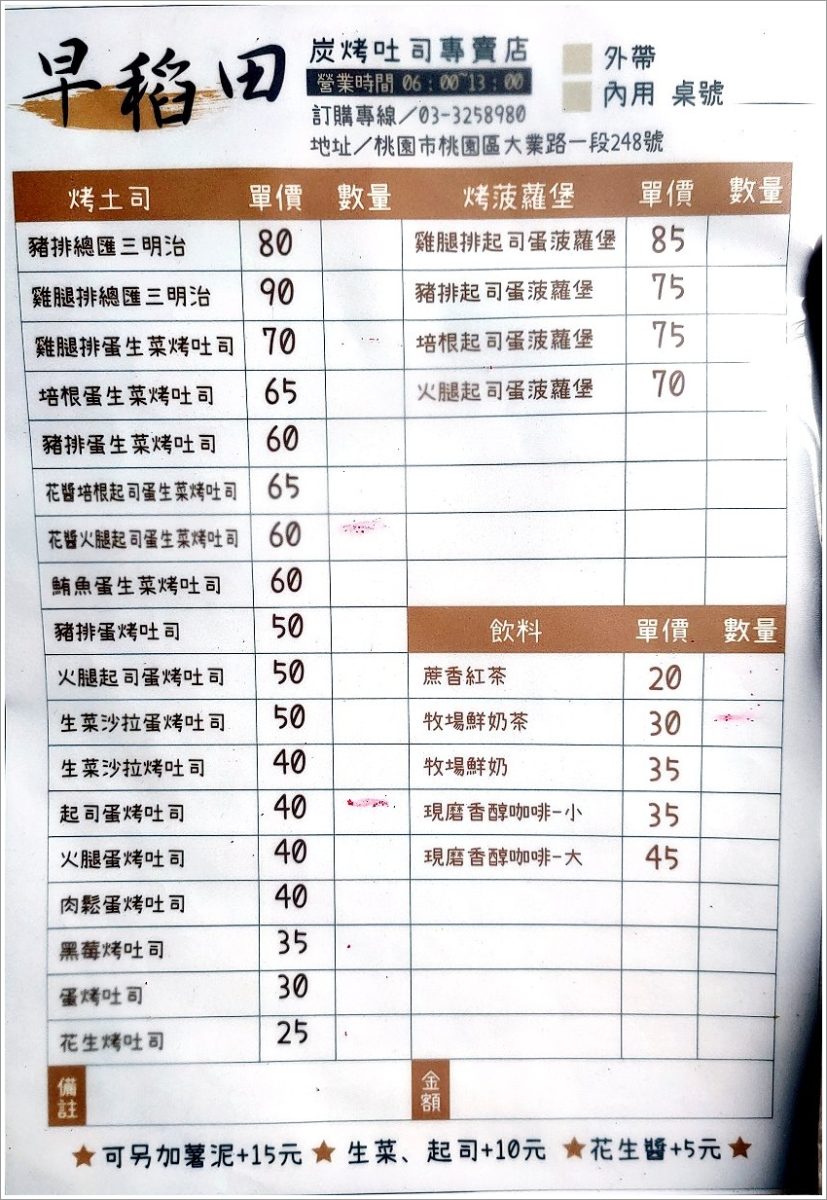 早稻田
炭烤吐司專賣店
營業時間 06:00~13:00
訂購專線/03-3258980
地址/桃園市桃園區大業路一段248號
外帶
內用 桌號
烤土司 單價 數量
豬排總匯三明治 80
雞腿排總匯三明治 90
雞腿排蛋生菜烤吐司 70
培根蛋生菜烤吐司 65
豬排蛋生菜烤吐司 60
花醬培根起司蛋生菜烤吐司 65
花醬火腿起司蛋生菜烤吐司 60
鮪魚蛋生菜烤吐司 60
豬排蛋烤吐司 50
火腿起司蛋烤吐司 50
生菜沙拉蛋烤吐司 50
生菜沙拉烤吐司 40
起司蛋烤吐司 40
火腿蛋烤吐司 40
肉鬆蛋烤吐司 40
黑莓烤吐司 35
蛋烤吐司 30
花生烤吐司 25
烤菠蘿堡 單價 數量
雞腿排起司蛋菠蘿堡 85
豬排起司蛋菠蘿堡 75
培根起司蛋菠蘿堡 75
火腿起司蛋菠蘿堡 70
飲料 單價 數量
蔗香紅茶 20
牧場鮮奶茶 30
牧場鮮奶 35
現磨香醇咖啡-小 35
現磨香醇咖啡-大 45
備註
金額
★可另加薯泥+15元★ 生菜、起司+10元 ★花生醬+5元★